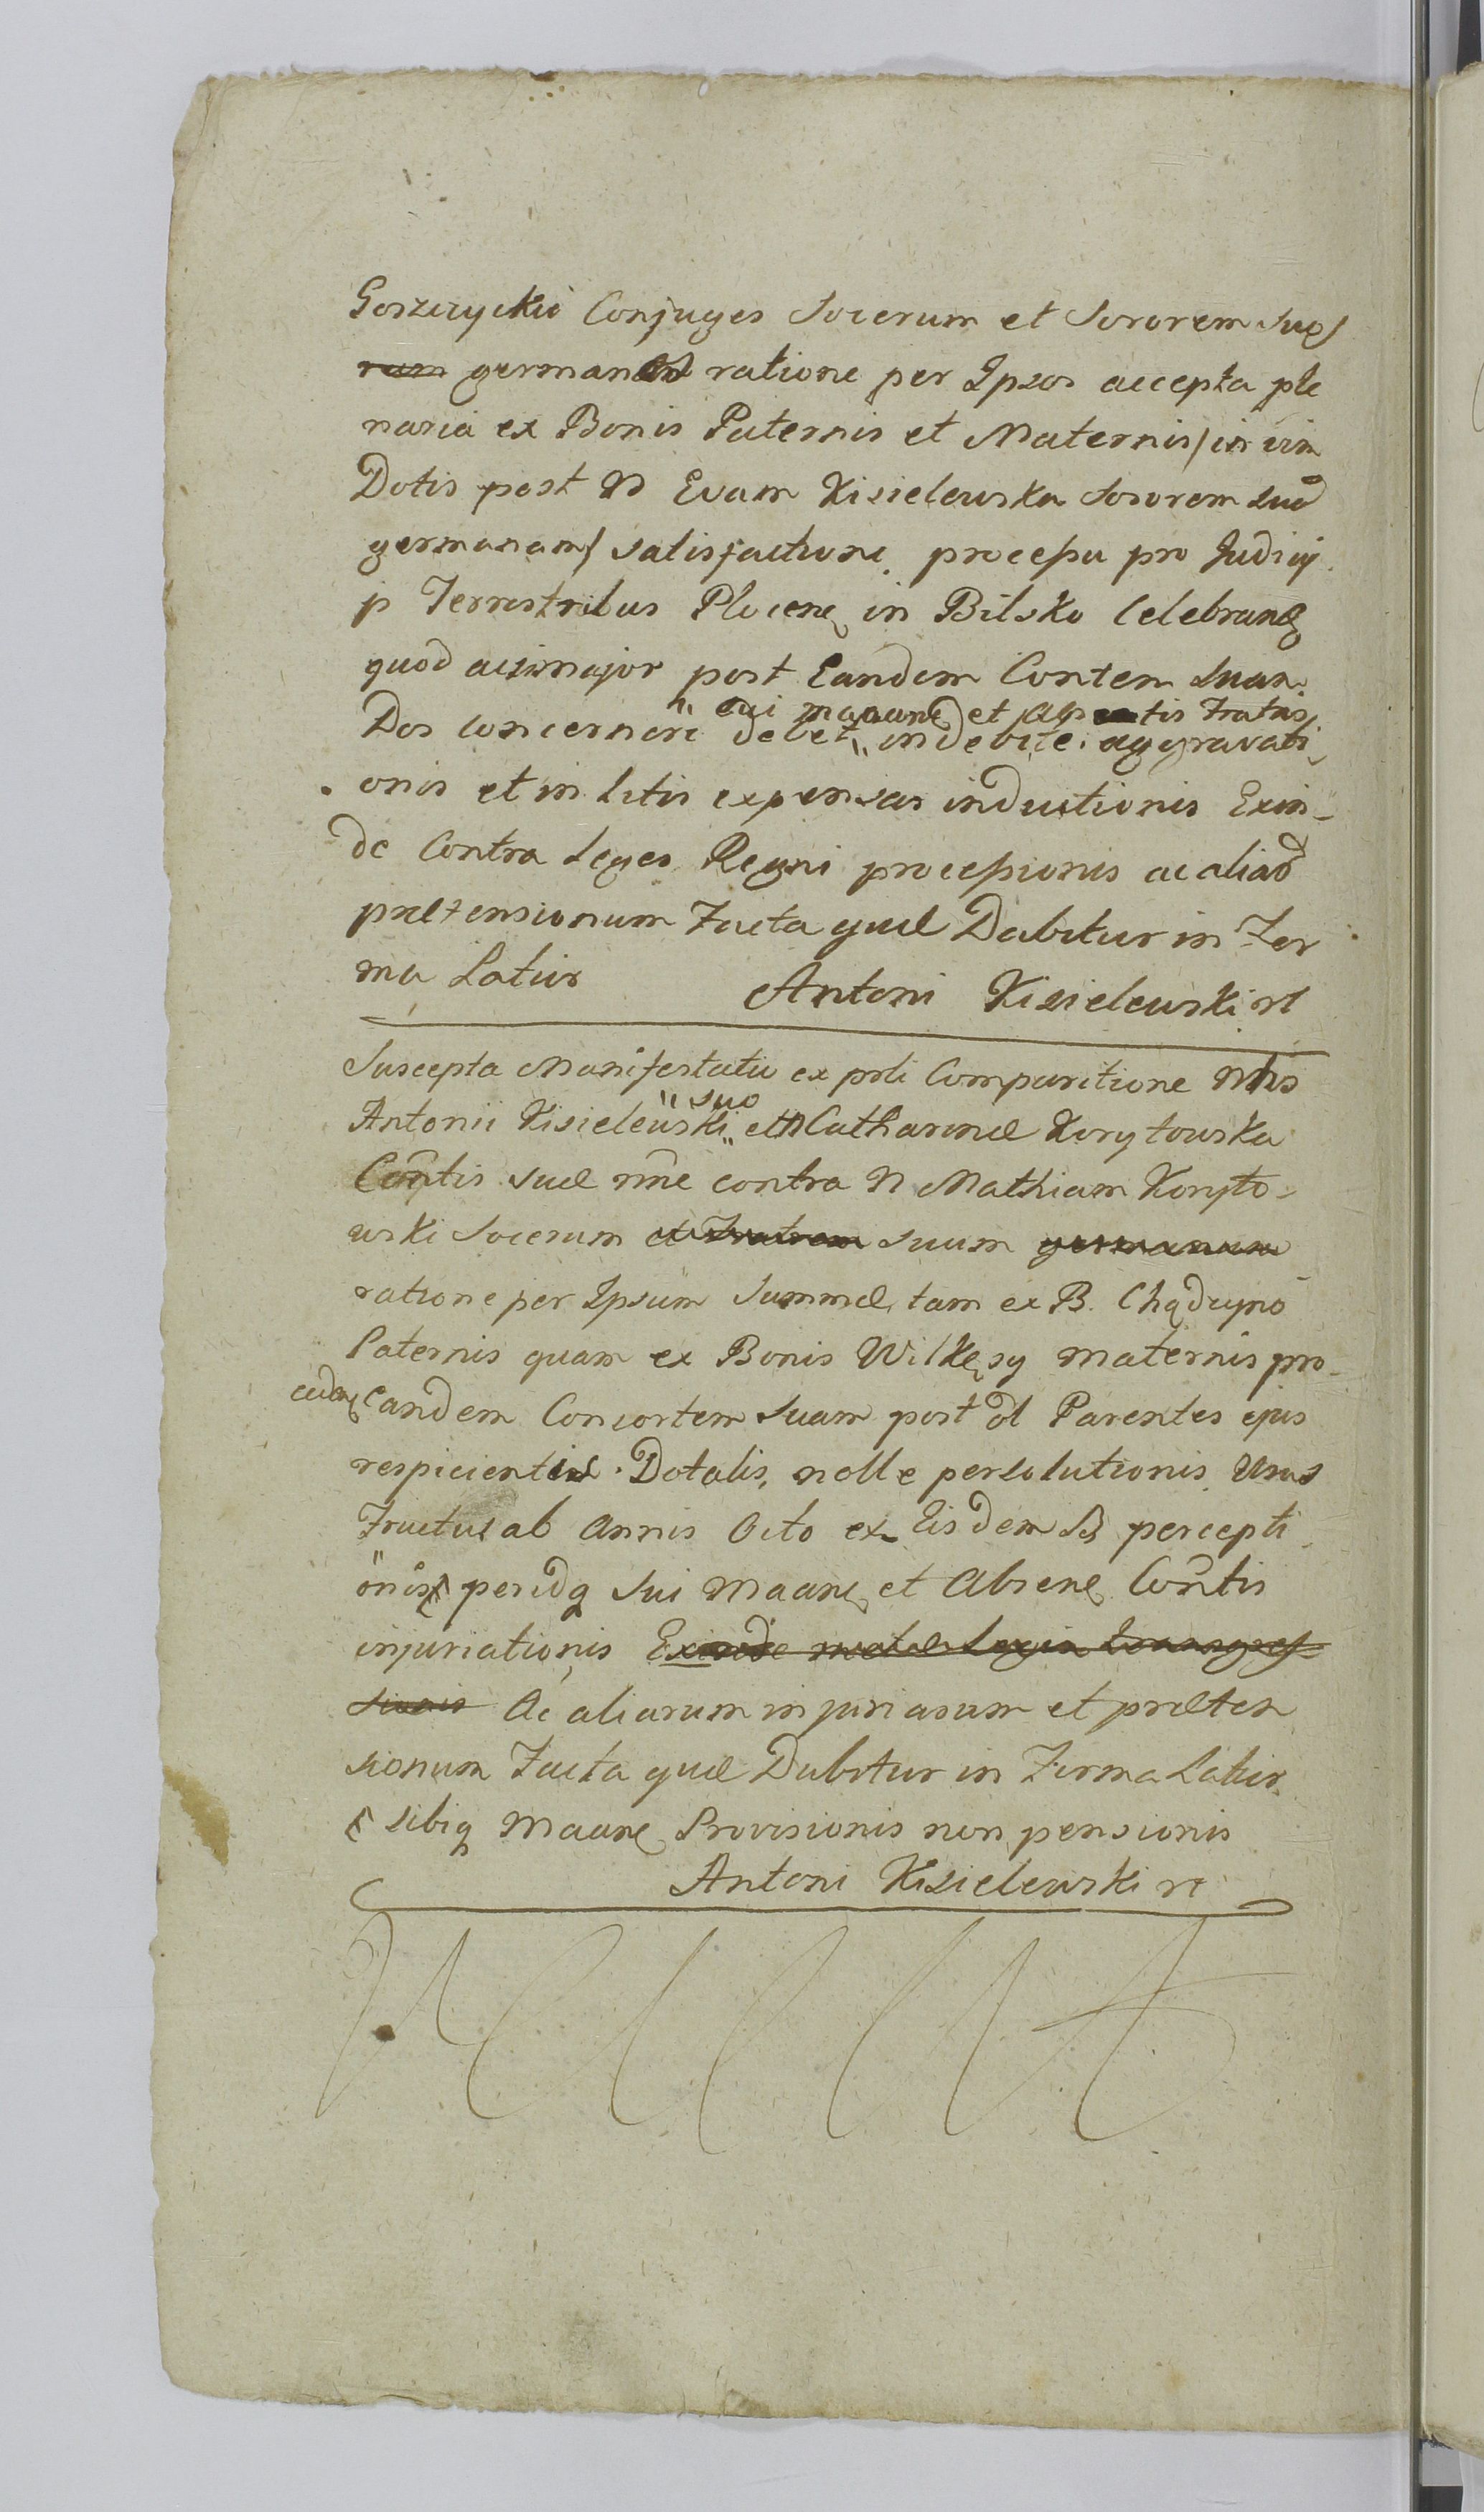 Goszczyckie Conjuges Socerum et Sororem suos
rum germanas ratione per Ipsos accepta ple
naria ex Bonis Paternis et Maternis /in vim
Dotis post N Evam Kisielewska Sororem suã
germanam/ satisfactione, processu pro Judicÿ
p Terrestribus Plocenȩ in Bilsko Celebranȩ
quod acsi major post Eandem Contem suam
sui maaanȩ et Absentis Fratris
Dos concerneri debet indebite aggravati
onis et in litis expensas inductionis Exin-
de Contra Leges Regni processionis ac aliað
prætensionum Facta quæ Dabitur in For
ma Latius
Antoni Kisielewski m
Suscepta Manifestatio ex prli Comparitione Mfis
suo
Antonii Kisielewski et N Catharinæ Korytowska
Contis suæ nne contra N Mathiam Koryto-
wski Socerum et Fratrem suum germanum
ratione per Ipsum Summæ, tam ex B. Chądzyno
Paternis quam ex Bonis Wilkęsy maternis pro-
Eandem Consortem suam post ol Parentes ejus
respicientis Dotalis, nolle persolutionis, Usus
Fructus ab Annis Octo ex Eisdem B percepti
onis peridq sui Maanȩ et Absenȩ Contis
injuriationis Exinde Legis transgres
sionis Ac aliarum injuriarum et præten
sionum Facta quæ Dabitur in Forma Latius
sibiq Maanȩ Provisionis non pensionis
Antoni Kisielewski m